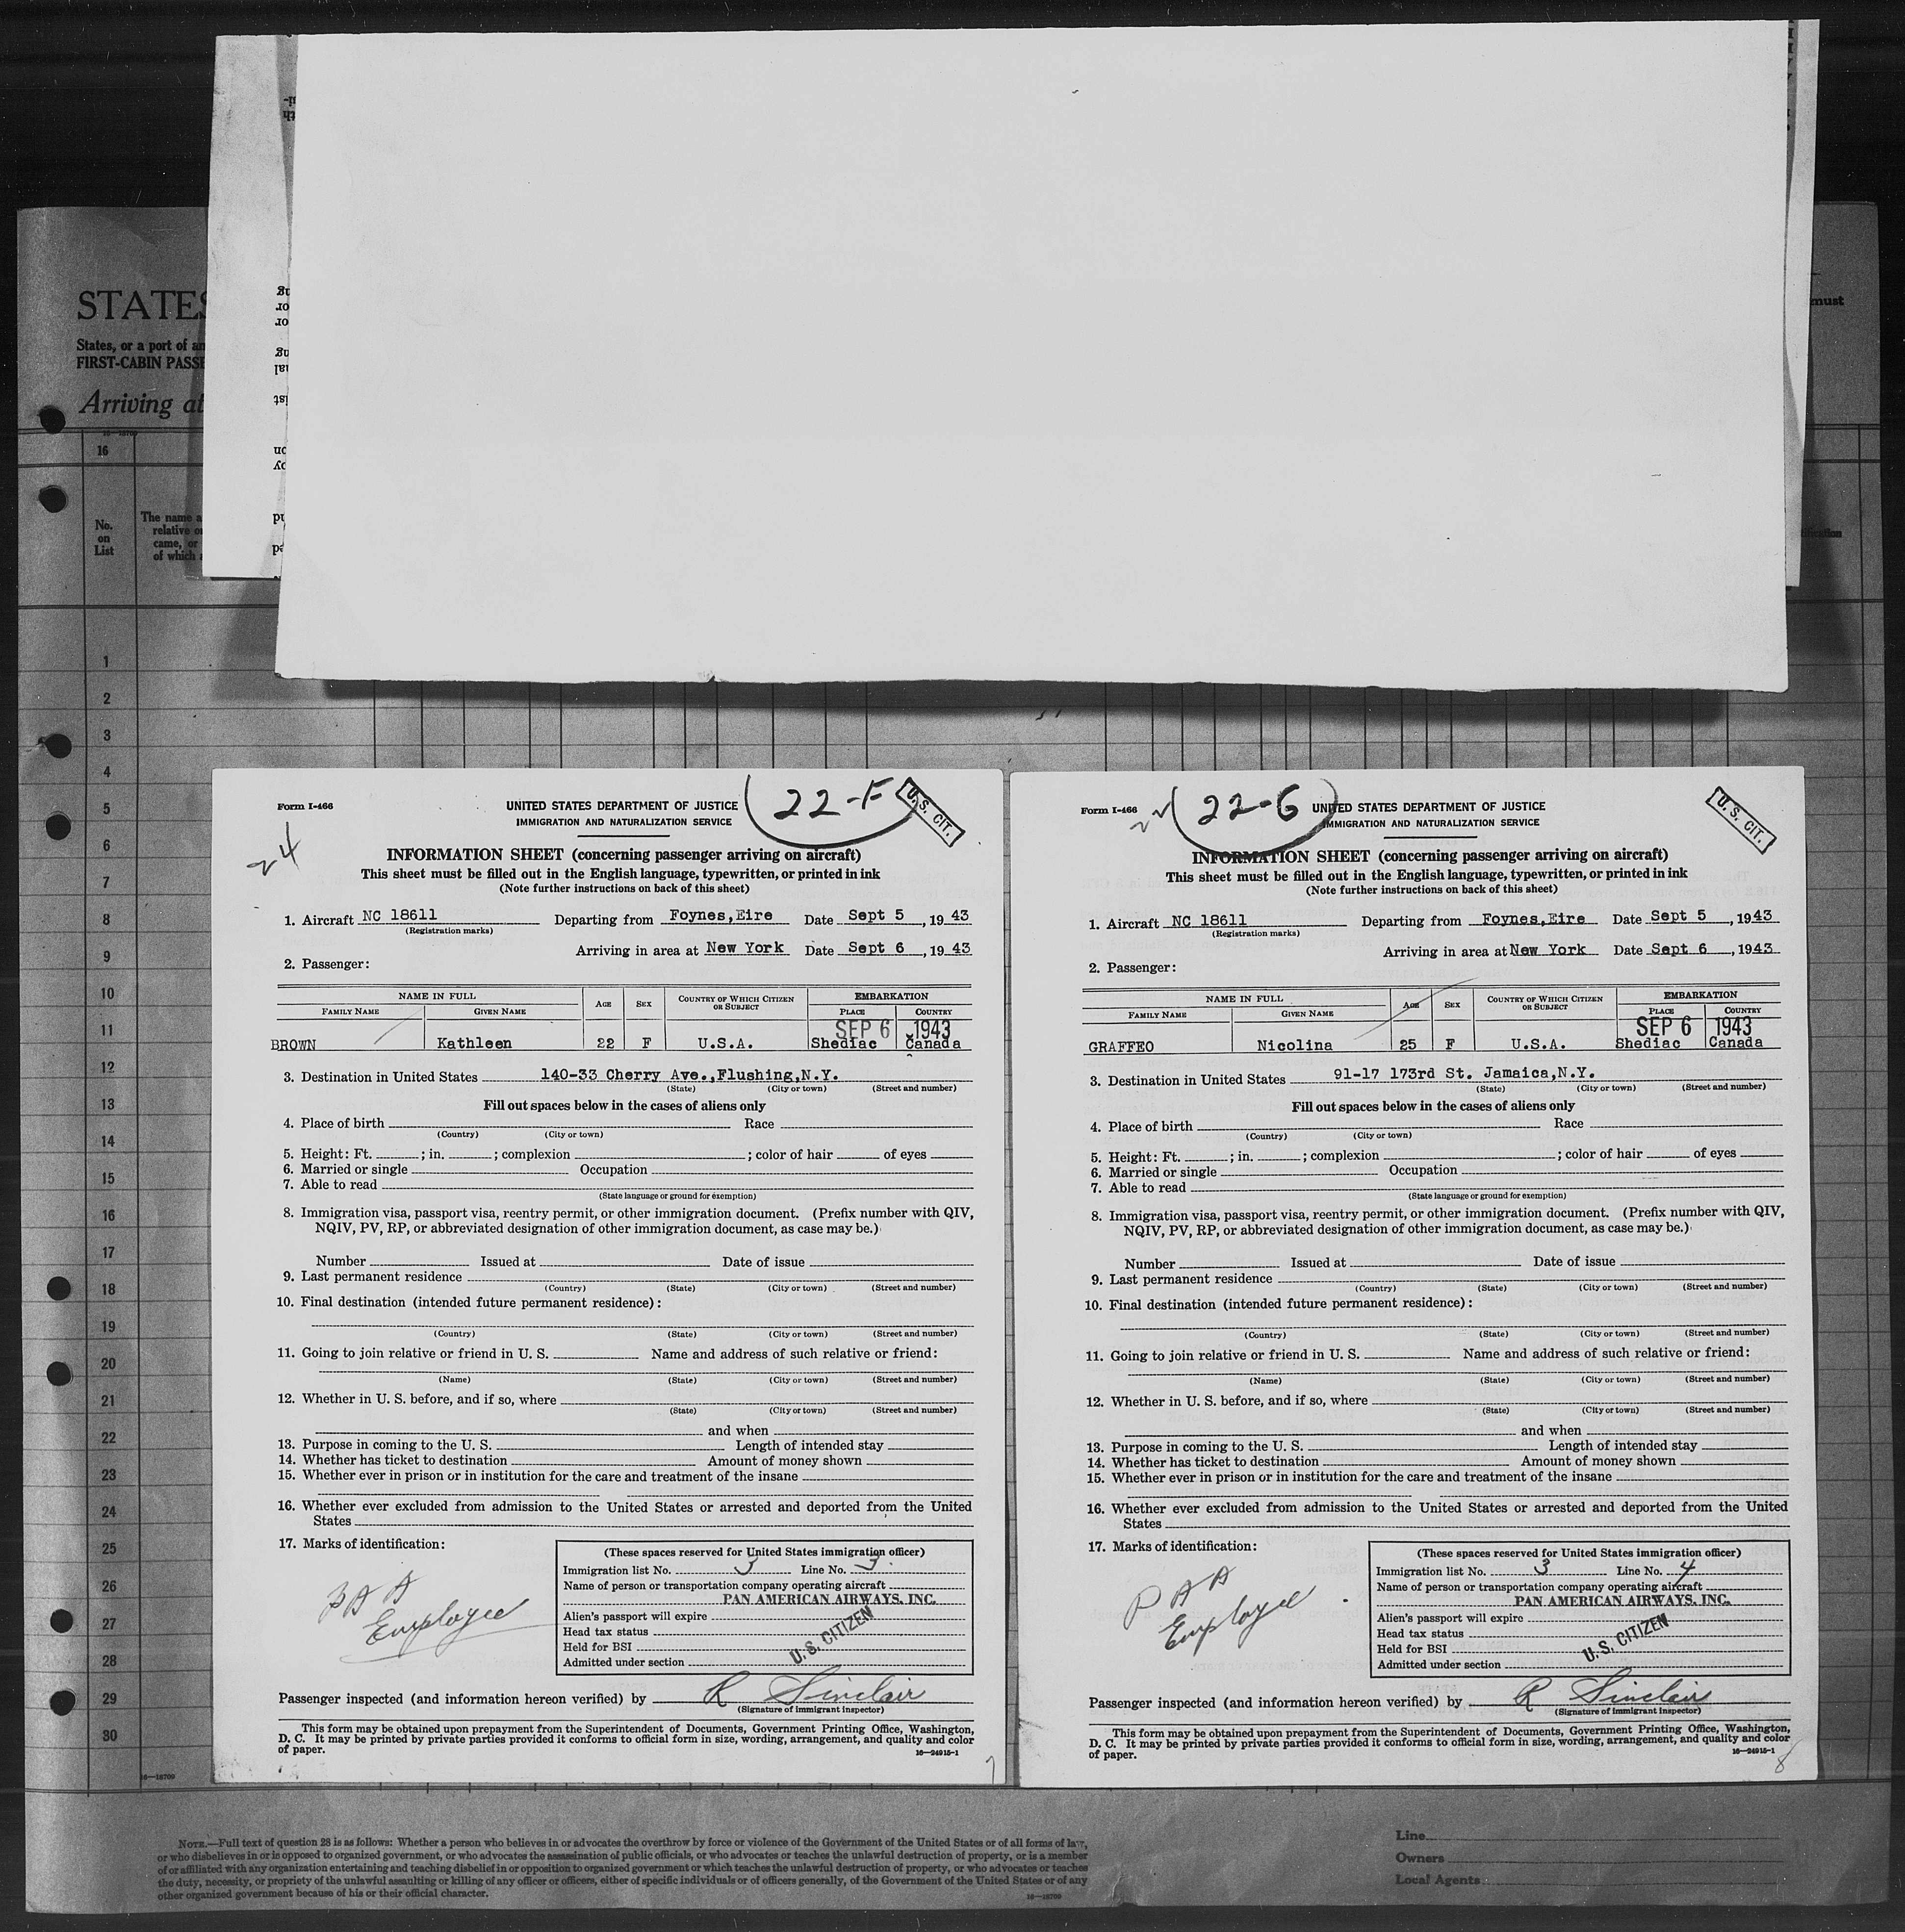 STATES
States, or a port of an
FIRST-CABIN PASSE
Arriving at
must
16
No.
on
List
The name a
relative o
came, or
of which
1
2
3
4
5
6
7
8
9
10
11
12
13
14
15
16
17
18
19
20
21
22
23
24
25
26
27
28
29
30
16—18709
Form I-466
24
UNITED STATES DEPARTMENT OF JUSTICE
IMMIGRATION AND NATURALIZATION SERVICE
22-F
U.S. CIT.
INFORMATION SHEET (concerning passenger arriving on aircraft)
This sheet must be filled out in the English language, typewritten, or printed in ink
(Note further instructions on back of this sheet)
1. Aircraft NC 18611 Departing from Foynes,Eire Date Sept 5, 1943
(Registration marks)
Arriving in area at New York Date Sept 6, 1943
2. Passenger:
NAME IN FULL AGE SEX COUNTRY OF WHICH CITIZEN OR SUBJECT EMBARKATION
FAMILY NAME GIVEN NAME PLACE COUNTRY
SEP 6 1943
BROWN Kathleen 22 F U.S.A. Shediac Canada
3. Destination in United States 140-33 Cherry Ave.,Flushing,N.Y.
(State) (City or town) (Street and number)
Fill out spaces below in the cases of aliens only
4. Place of birth Race
(Country) (City or town)
5. Height: Ft. ; in. ; complexion ; color of hair of eyes
6. Married or single Occupation
7. Able to read
(State language or ground for exemption)
8. Immigration visa, passport visa, reentry permit, or other immigration document. (Prefix number with QIV,
NQIV, PV, RP, or abbreviated designation of other immigration document, as case may be.)
Number Issued at Date of issue
9. Last permanent residence
(Country) (State) (City or town) (Street and number)
10. Final destination (intended future permanent residence):
(Country) (State) (City or town) (Street and number)
11. Going to join relative or friend in U. S. Name and address of such relative or friend:
(Name) (State) (City or town) (Street and number)
12. Whether in U. S. before, and if so, where
(State) (City or town) (Street and number)
and when
13. Purpose in coming to the U. S. Length of intended stay
14. Whether has ticket to destination Amount of money shown
15. Whether ever in prison or in institution for the care and treatment of the insane
16. Whether ever excluded from admission to the United States or arrested and deported from the United
States
17. Marks of identification:
PAA
Employee
(These spaces reserved for United States immigration officer)
Immigration list No. 3 Line No. 3
Name of person or transportation company operating aircraft
PAN AMERICAN AIRWAYS, INC.
Alien's passport will expire
Head tax status
Held for BSI
Admitted under section
U.S. CITIZEN
Passenger inspected (and information hereon verified) by R Sinclair
(Signature of immigrant inspector)
This form may be obtained upon prepayment from the Superintendent of Documents, Government Printing Office, Washington,
D. C. It may be printed by private parties provided it conforms to official form in size, wording, arrangement, and quality and color
of paper.
16—24915-1
7
Form I-466
22
22-G
UNITED STATES DEPARTMENT OF JUSTICE
IMMIGRATION AND NATURALIZATION SERVICE
U.S. CIT.
INFORMATION SHEET (concerning passenger arriving on aircraft)
This sheet must be filled out in the English language, typewritten, or printed in ink
(Note further instructions on back of this sheet)
1. Aircraft NC 18611 Departing from Foynes,Eire Date Sept 5, 1943
(Registration marks)
Arriving in area at New York Date Sept 6, 1943
2. Passenger:
NAME IN FULL AGE SEX COUNTRY OF WHICH CITIZEN OR SUBJECT EMBARKATION
FAMILY NAME GIVEN NAME PLACE COUNTRY
SEP 6 1943
GRAFFEO Nicolina 25 F U.S.A. Shediac Canada
3. Destination in United States 91-17 173rd St. Jamaica,N.Y.
(State) (City or town) (Street and number)
Fill out spaces below in the cases of aliens only
4. Place of birth Race
(Country) (City or town)
5. Height: Ft. ; in. ; complexion ; color of hair of eyes
6. Married or single Occupation
7. Able to read
(State language or ground for exemption)
8. Immigration visa, passport visa, reentry permit, or other immigration document. (Prefix number with QIV,
NQIV, PV, RP, or abbreviated designation of other immigration document, as case may be.)
Number Issued at Date of issue
9. Last permanent residence
(Country) (State) (City or town) (Street and number)
10. Final destination (intended future permanent residence):
(Country) (State) (City or town) (Street and number)
11. Going to join relative or friend in U. S. Name and address of such relative or friend:
(Name) (State) (City or town) (Street and number)
12. Whether in U. S. before, and if so, where
(State) (City or town) (Street and number)
and when
13. Purpose in coming to the U. S. Length of intended stay
14. Whether has ticket to destination Amount of money shown
15. Whether ever in prison or in institution for the care and treatment of the insane
16. Whether ever excluded from admission to the United States or arrested and deported from the United
States
17. Marks of identification:
PAA
Employee
(These spaces reserved for United States immigration officer)
Immigration list No. 3 Line No. 4
Name of person or transportation company operating aircraft
PAN AMERICAN AIRWAYS, INC.
Alien's passport will expire
Head tax status
Held for BSI
Admitted under section
U.S. CITIZEN
Passenger inspected (and information hereon verified) by R Sinclair
(Signature of immigrant inspector)
This form may be obtained upon prepayment from the Superintendent of Documents, Government Printing Office, Washington,
D. C. It may be printed by private parties provided it conforms to official form in size, wording, arrangement, and quality and color
of paper.
16—24915-1
8
NOTE.—Full text of question 28 is as follows: Whether a person who believes in or advocates the overthrow by force or violence of the Government of the United States or of all forms of law,
or who disbelieves in or is opposed to organized government, or who advocates the assassination of public officials, or who advocates or teaches the unlawful destruction of property, or is a member
of or affiliated with any organization entertaining and teaching disbelief in or opposition to organized government or which teaches the unlawful destruction of property, or who advocates or teaches
the duty, necessity, or propriety of the unlawful assaulting or killing of any officer or officers, either of specific individuals or of officers generally, of the Government of the United States or of any
other organized government because of his or their official character.
16—18709
Line
Owners
Local Agents